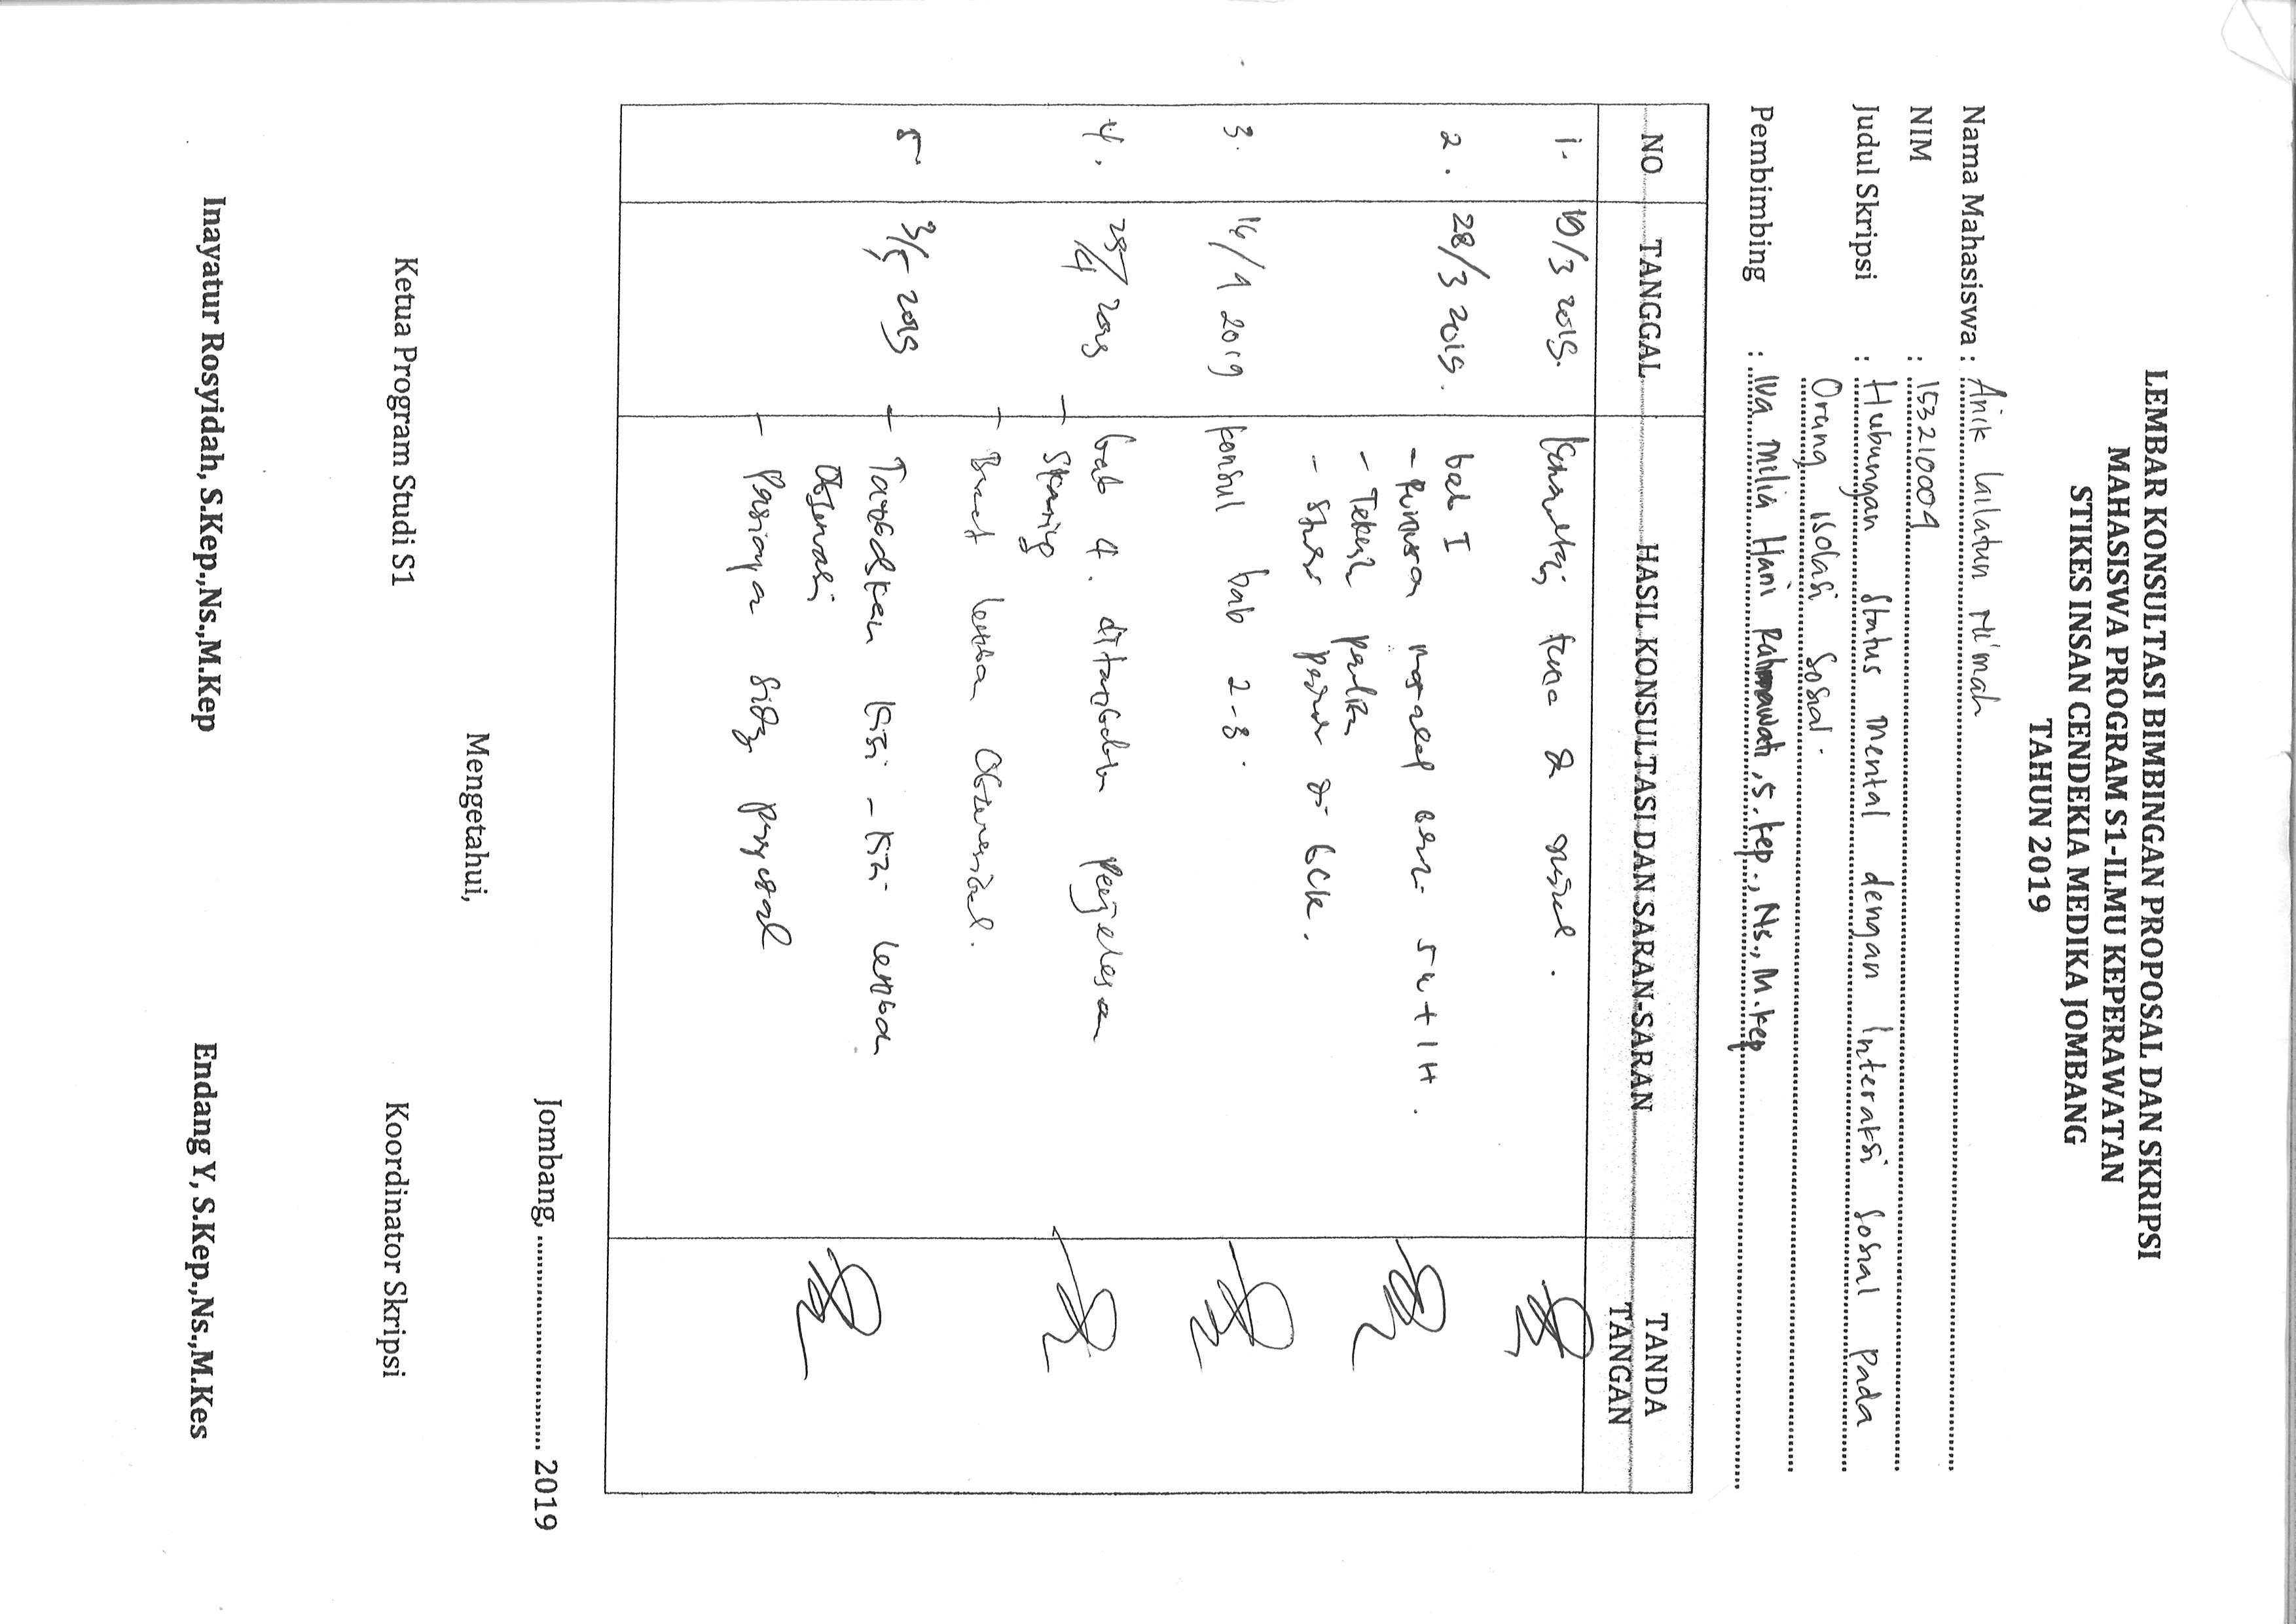 LEMBAR KONSULTASI BIMBINGAN PROPOSAL DAN SKRIPSI
MAHASISWA PROGRAM S1-ILMU KEPERAWATAN
STIKES INSAN CENDEKIA MEDIKA JOMBANG
TAHUN 2019
Nama Mahasiswa : Anik Lailatun Ni'mah
NIM : 153210004
Judul Skripsi : Hubungan Status mental dengan Interaksi Sosial Pada
Orang Isolasi Sosial.
Pembimbing : Iva Milia Hani Rahmawati, S.Kep., Ns., M.Kep
NO TANGGAL HASIL KONSULTASI DAN SARAN-SARAN TANDA TANGAN
1. 19/3 2019. Konsultasi tema & judul.
2. 28/3 2019. bab I
- Rumusan masalah 5W + 1H.
- Teknik
- di
3. 16/4 2019 konsul bab 2-3.
4. 29/4 2019 bab 4. ditambahkan penjelasan
- Skoring
- Buat lembar Observasional.
5 3/5 2019 - Tambahkan kisi-kisi lembar
Observasi
- proposal
Jombang, .................... 2019
Mengetahui,
Ketua Program Studi S1 Koordinator Skripsi
Inayatur Rosyidah, S.Kep.,Ns.,M.Kep Endang Y, S.Kep.,Ns.,M.Kes